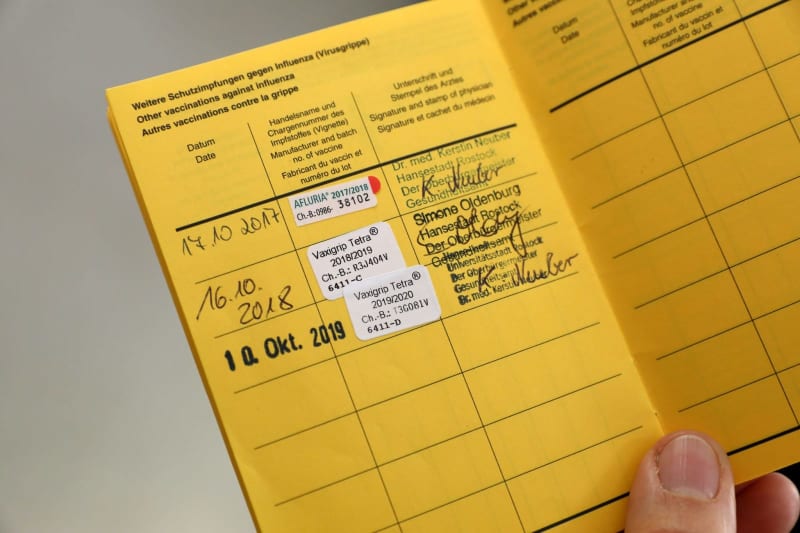 Weitere Schutzimpfungen gegen Influenza (Virusgrippe)
Other vaccinations against influenza
Autres vaccinations contre la grippe
Datum
Date
Handelsname und
Chargennummer des
Impfstoffes (Vignette)
Manufacturer and batch
no. of vaccine
Fabricant du vaccin et
numéro du lot
Unterschrift und
Stempel des Arztes
Signature and stamp of physician
Signature et cachet du médecin
17.10 2017
AFLURIA® 2017/2018
Ch.-B.:0986- 38102
Dr. med. Kerstin Neuber
Hansestadt Rostock
Der Oberbürgermeister
Gesundheitsamt
K. Neuber
16.10.
2018
Vaxigrip Tetra®
2018/2019
Ch.-B.: R3J404V
6411-C
Simone Oldenburg
Hansestadt Rostock
Der Oberbürgermeister
Gesundheitsamt
10. Okt. 2019
Vaxigrip Tetra®
2019/2020
Ch.-B.: T3G081V
6411-D
Universitätsstadt Rostock
Der Oberbürgermeister
Gesundheitsamt
Dr. med. Kerstin Neuber
K. Neuber
Datum
Date
Handelsname und
Chargennummer des
Impfstoffes (Vignette)
Manufacturer and batch
no. of vaccine
Fabricant du vaccin et
numéro du lot